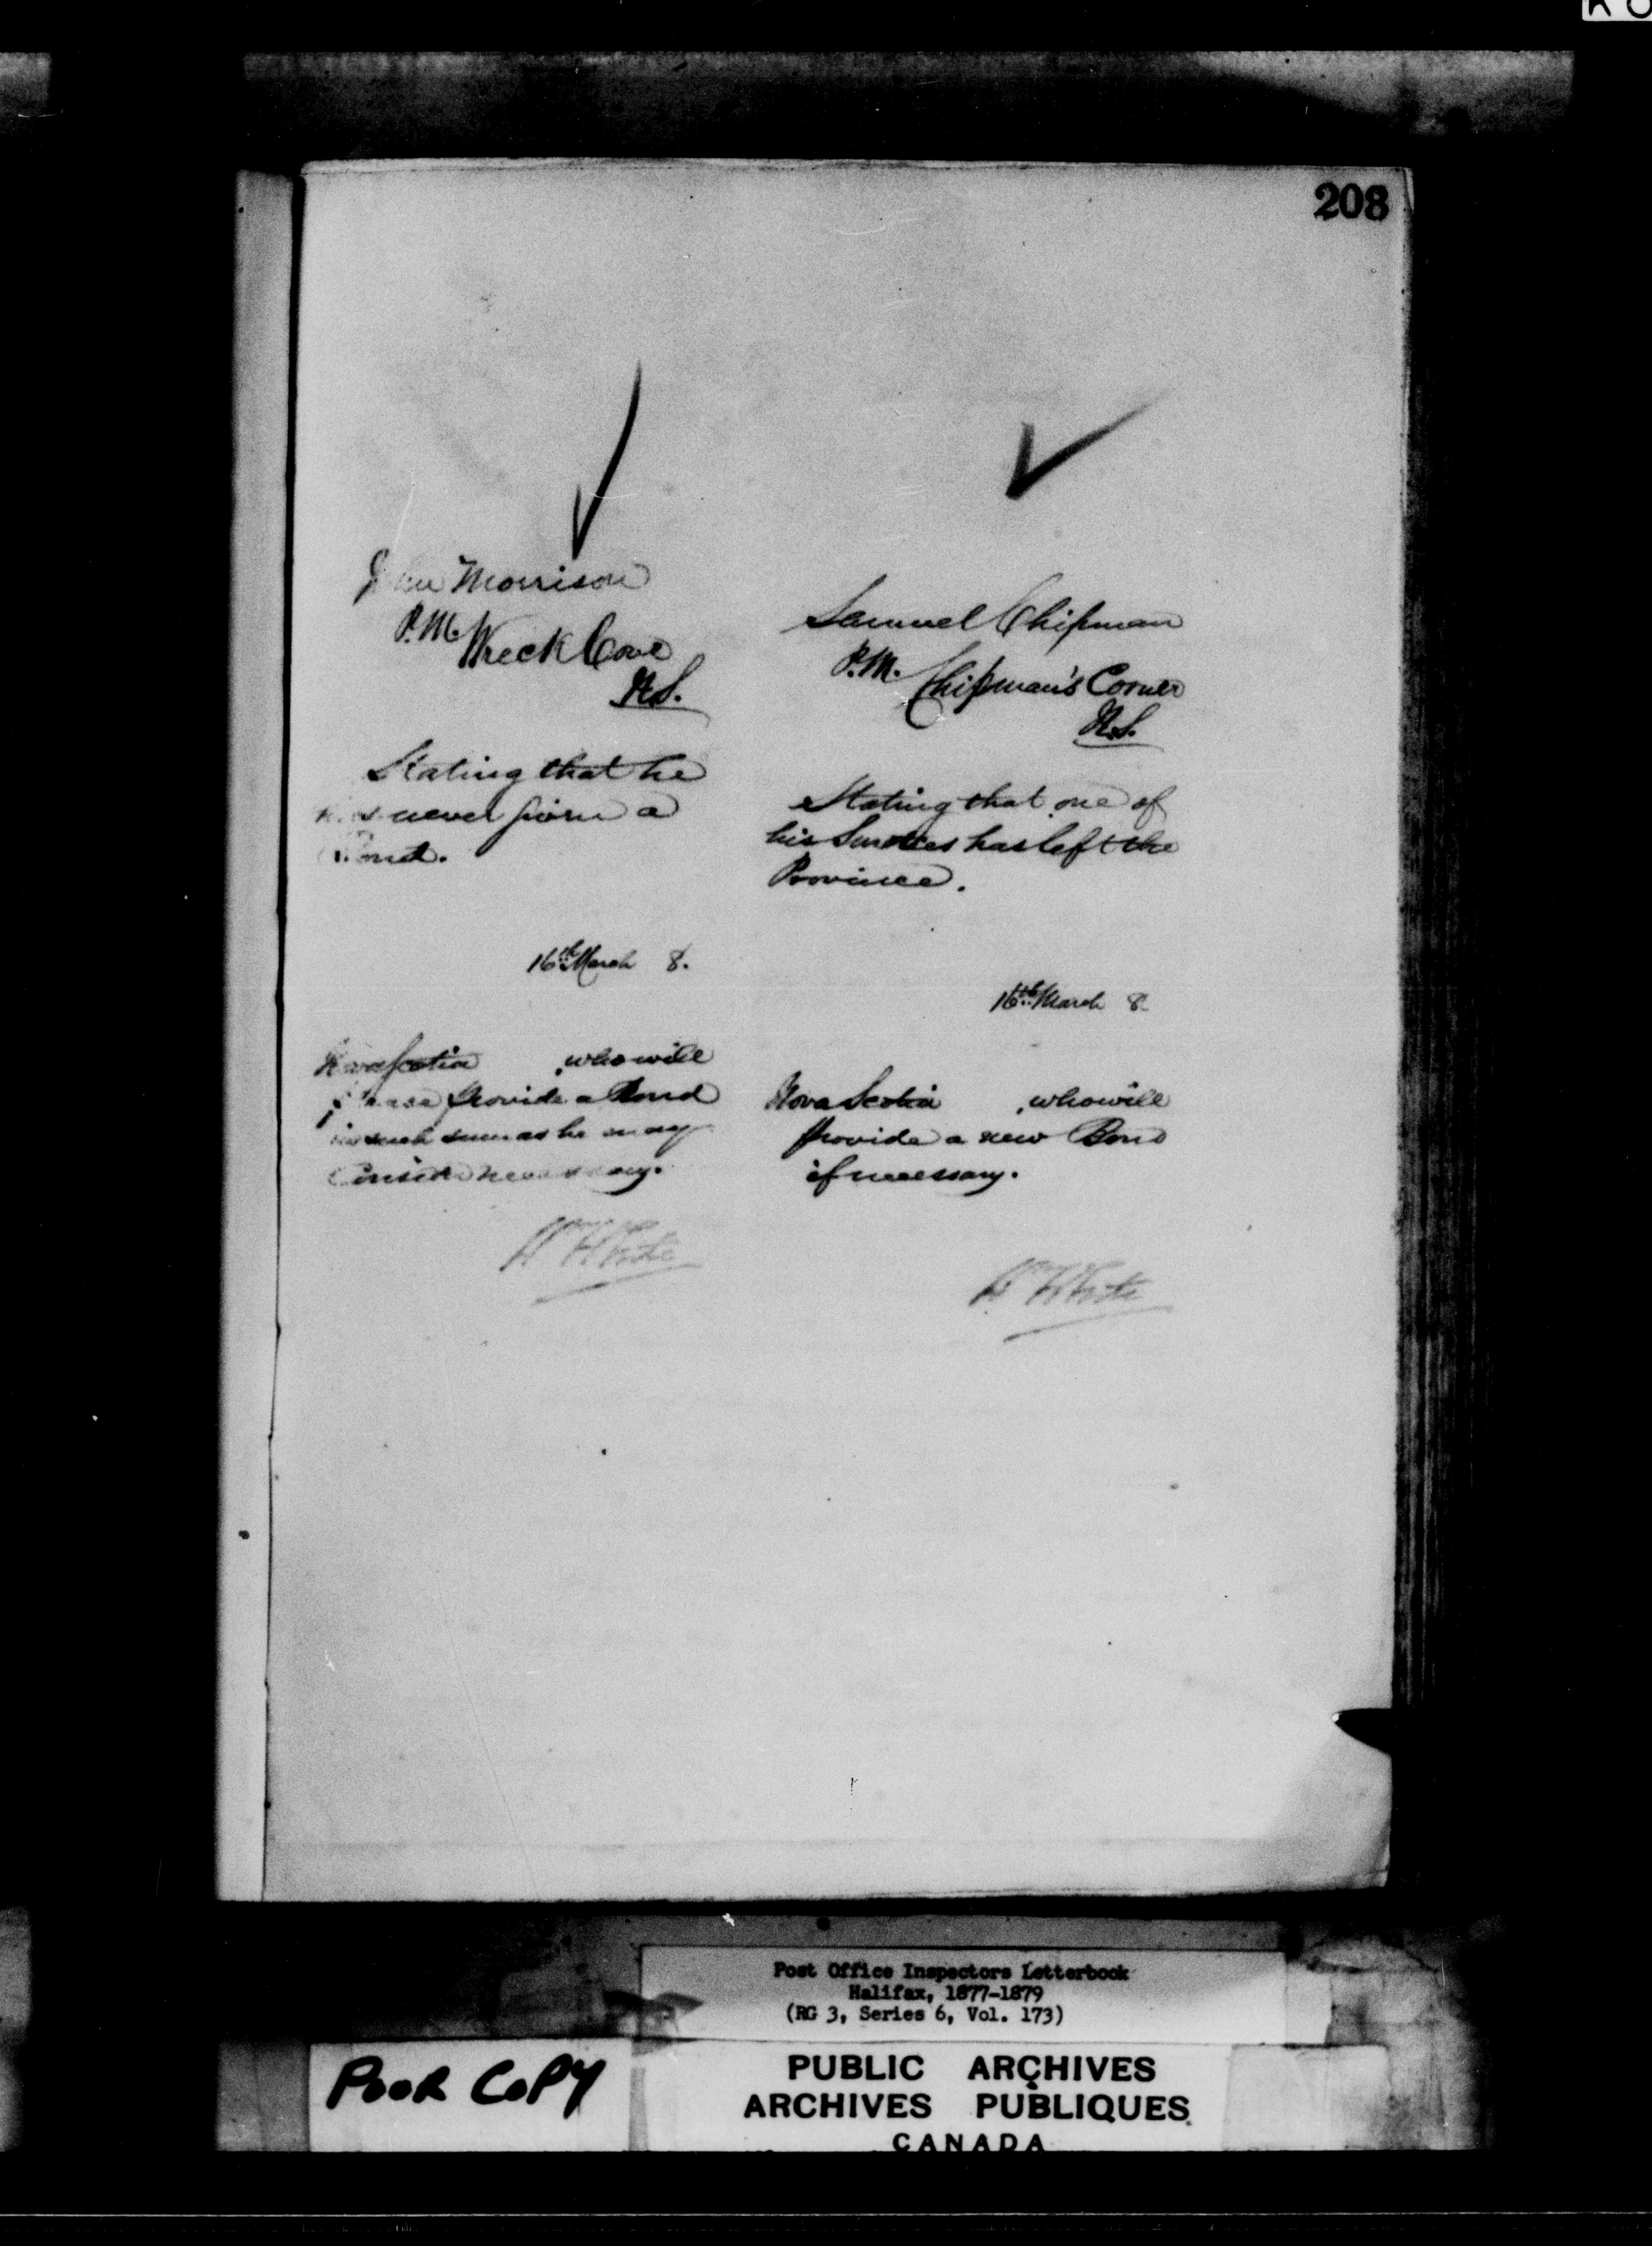 208
John Morrison
P.M. Wreck Cove
N.S.
Stating that he
has never given a
Bond.
16th March 8.
Nova Scotia , who will
please provide a Bond
in such sum as he may
Consider necessary.
W White
Samuel Chipman
P.M. Chipman's Corner
N.S.
Stating that one of
his Sureties has left the
Province.
16th March 8
Nova Scotia , who will
provide a new Bond
if necessary.
W White
Post Office Inspectors Letterbook
Halifax, 1877-1879
(RG 3, Series 6, Vol. 173)
POOR COPY
PUBLIC ARCHIVES
ARCHIVES PUBLIQUES
CANADA